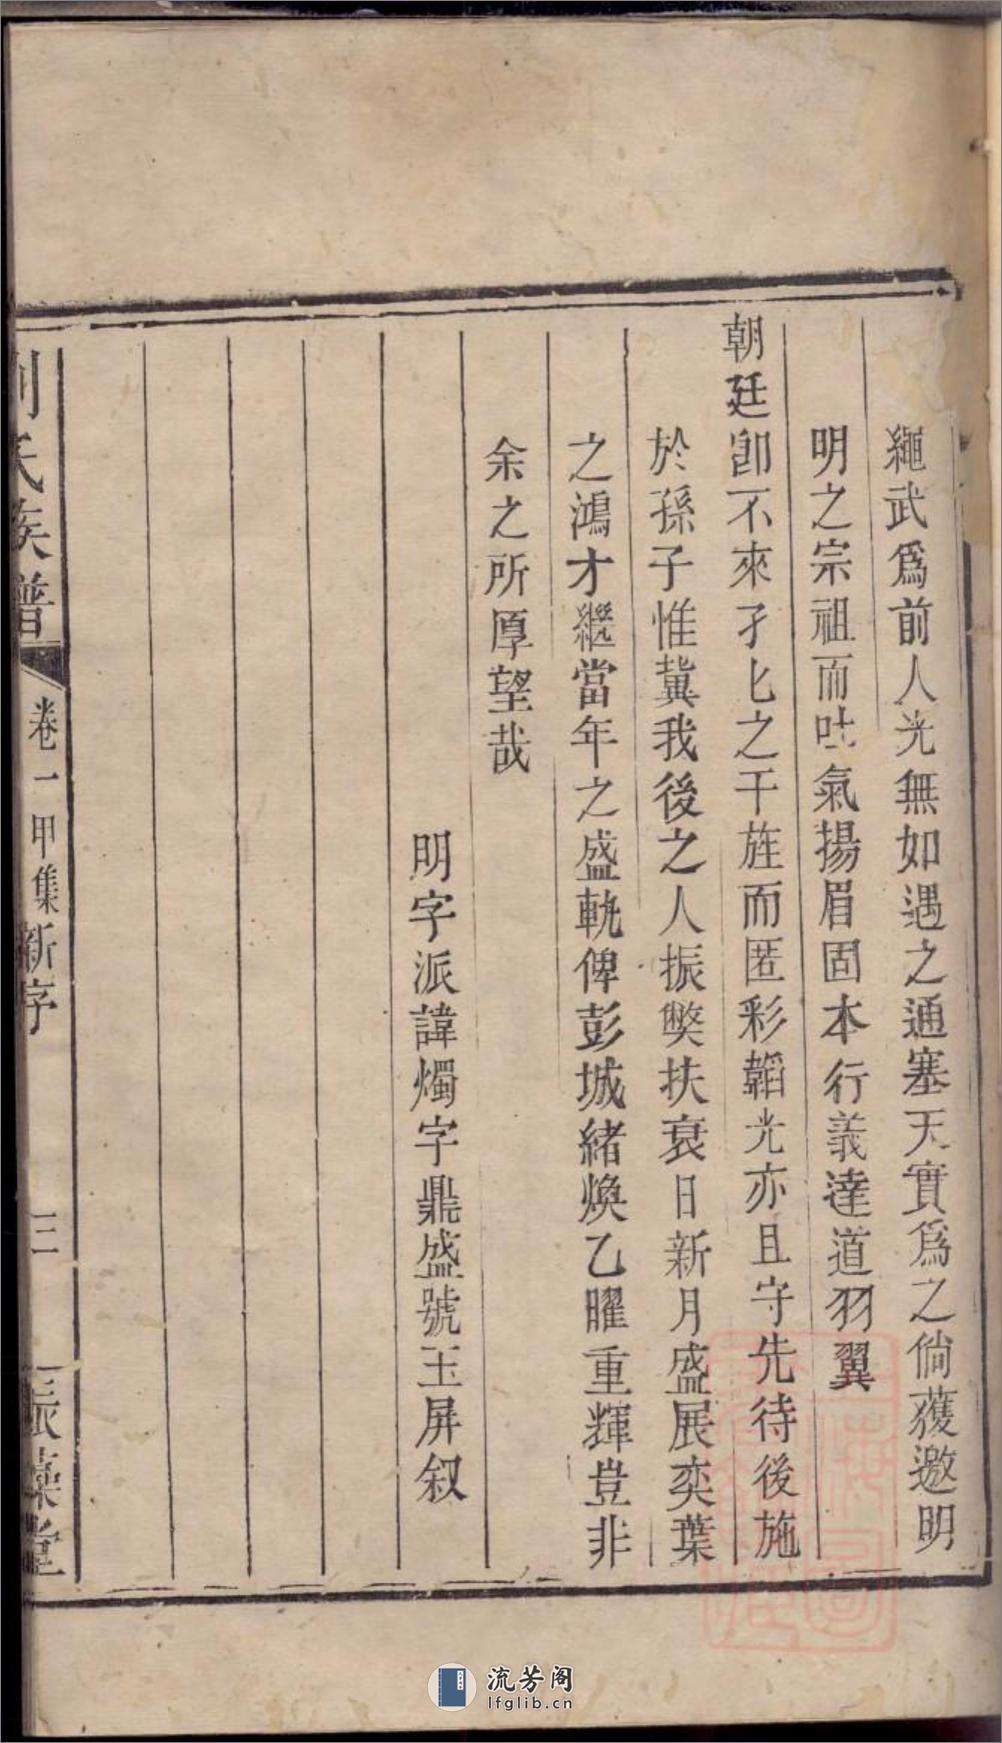 繩武爲前人光無如遇之通塞天實爲之倘獲邀明
明之宗祖而吐氣揚眉固本行義達道羽翼
朝廷卽不來孑匕之干旌而匿彩韜光亦且守先待後施
於孫子惟冀我後之人振獘扶衰日新月盛展奕葉
之鴻才繼當年之盛軌俾彭城緒煥乙曜重輝豈非
余之所厚望哉
明字派諱燭字鼎盛號玉屏叙
氏族譜
卷一甲集新序
三
振藻堂
流芳阁
lfglib.cn